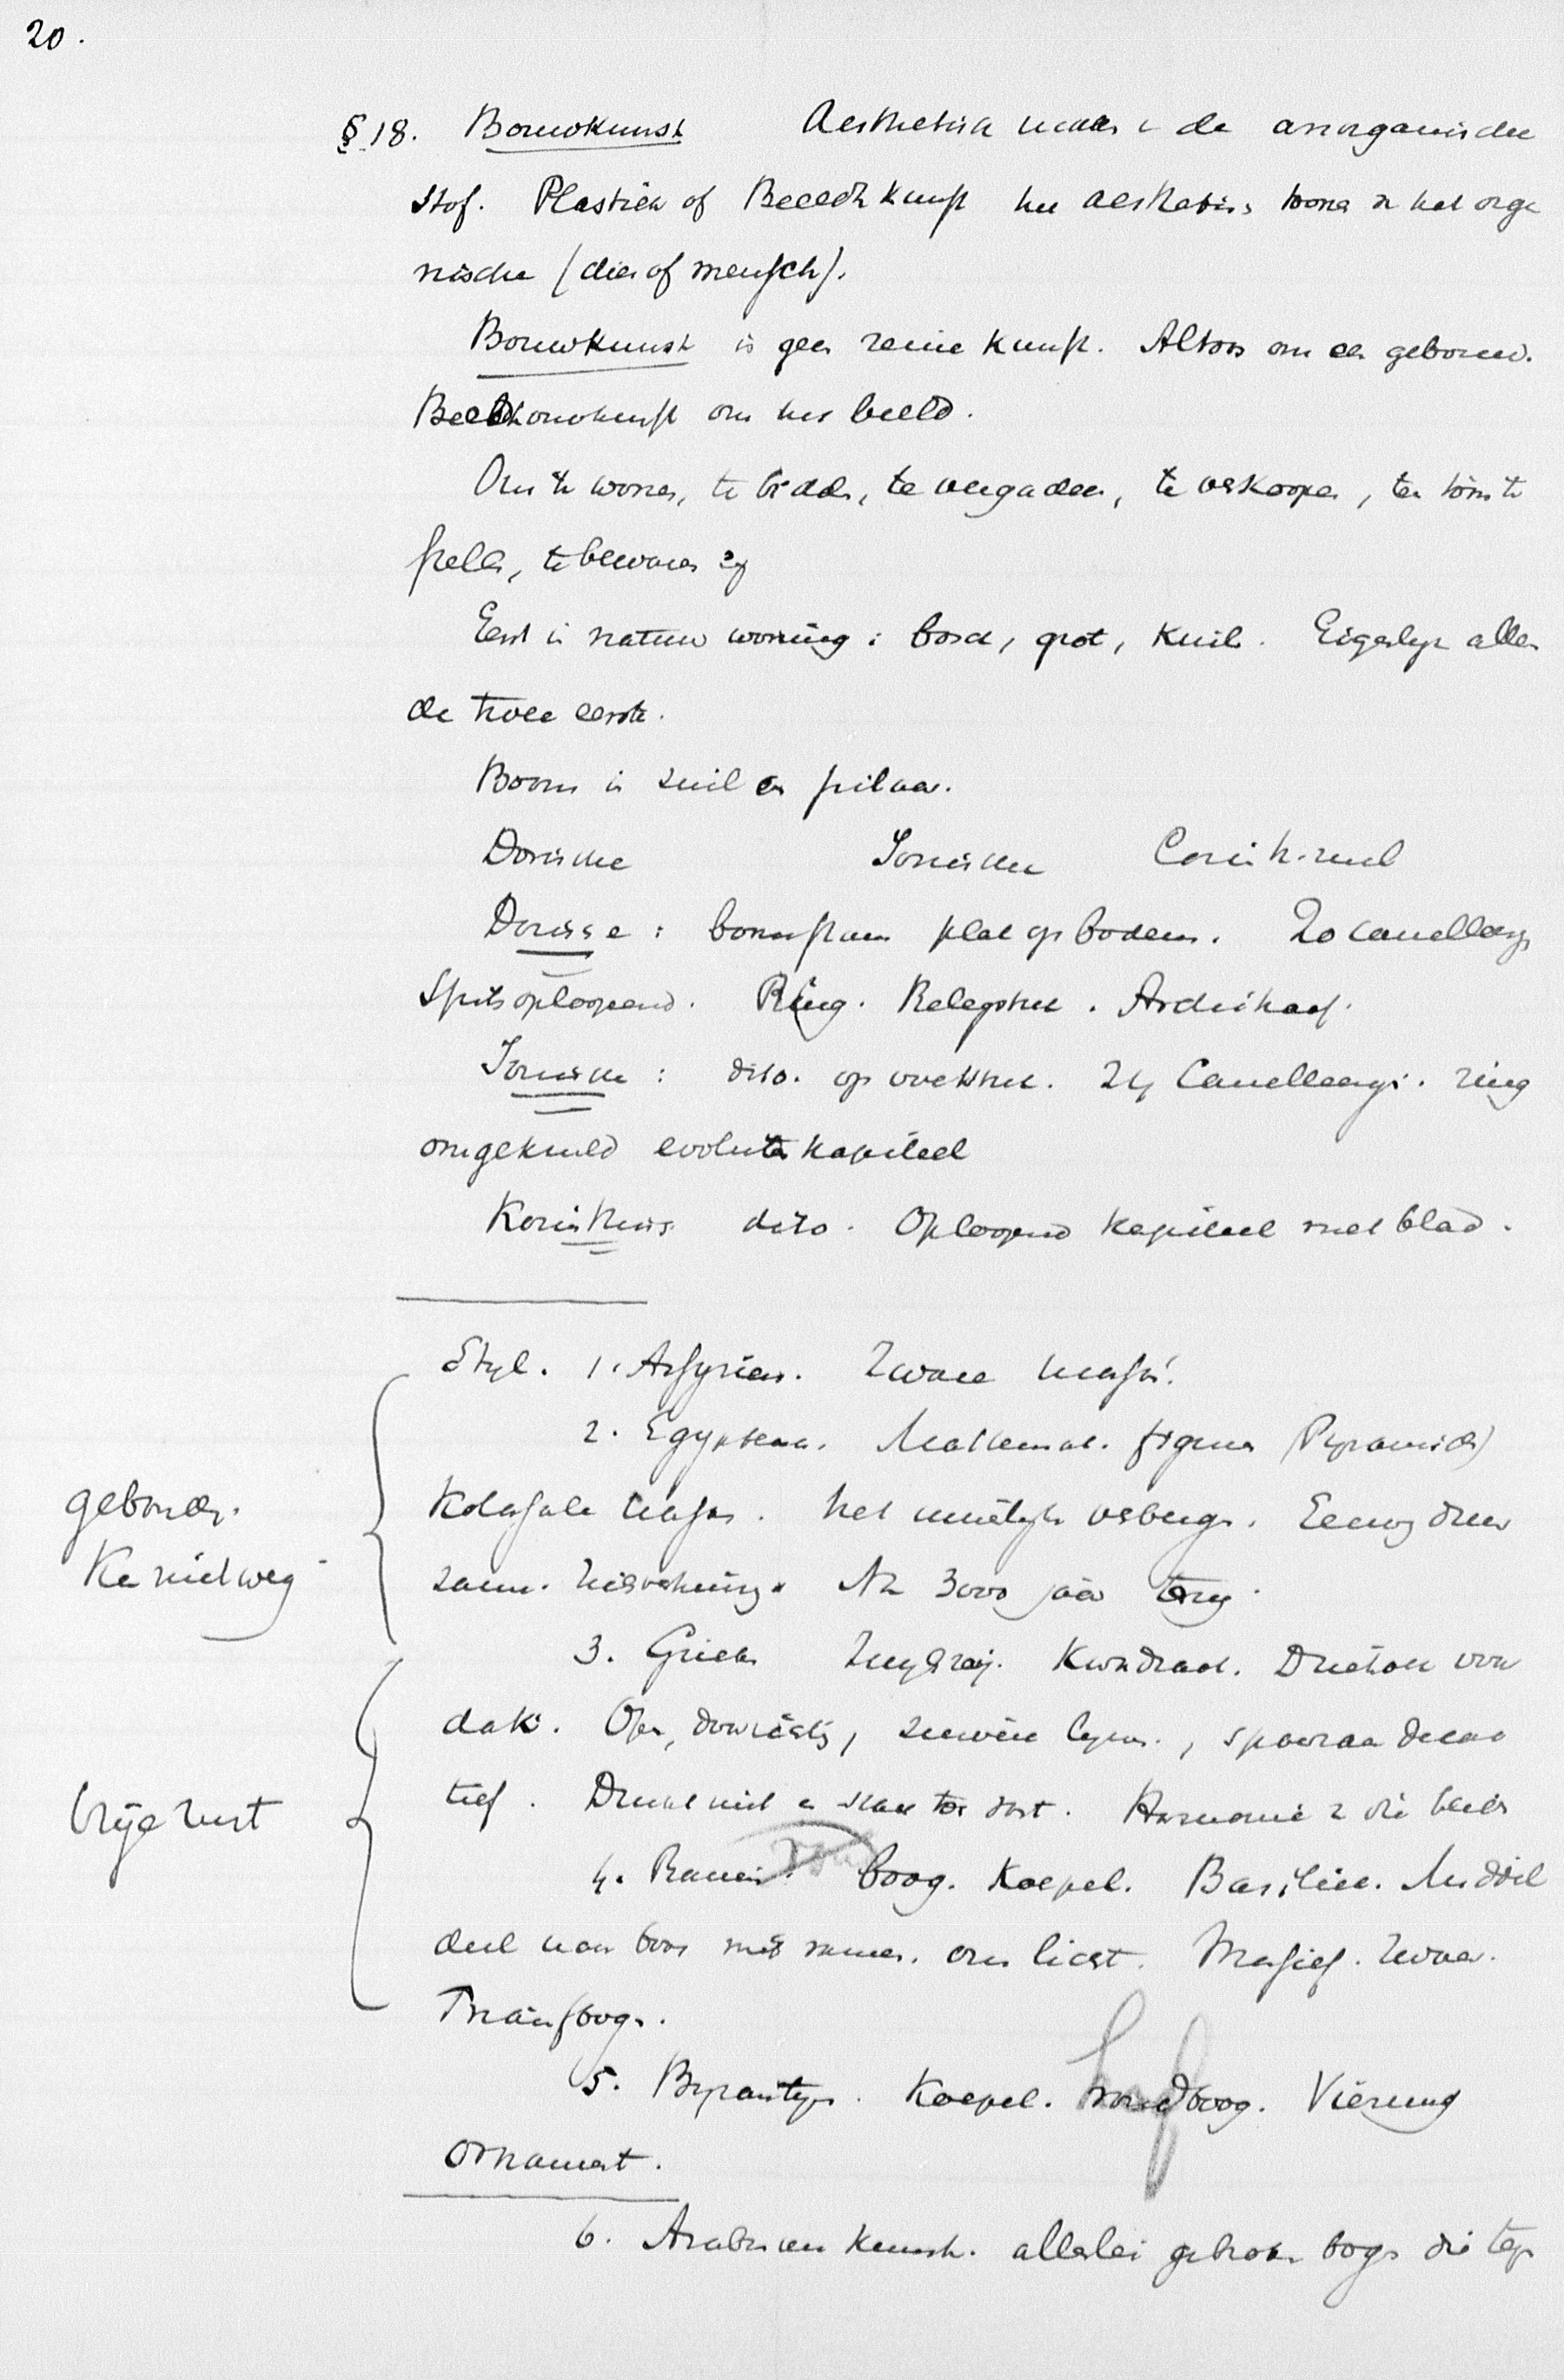 20.
§ 18. Bouwkunst Aesthetisch maken de anorganische
stof. Plastiek of Beeldh kunst het aesthetis tonen in het orga
nische (dier of mensch).
Bouwkunst is geen reine kunst. Altoos om een gebouw.
Beeldhouwkunst om het beeld.
Om te wonen, te bidden, te vergaderen, te verkoopen, ten toon te
stellen, te bewaren
Eerst in natuur woning: bosch, grot, kuil. Eigenlijk alleen
de twee eerste.
Boom is zuil en pilaar.
Dorische Ionische Corinth. zuil
Dorisse: boomstam plat op bodem. 20 canelleering
Spits oplopend. Ring. Architraaf.
Ionische: dito. op voetstuk. 24 Canelleering. ring
omgekruld evoluten kapiteel
Korinthisc dito. Oplopend kapiteel met blad.
Styl. 1. Assyrien. Zware massa.
2. Egyptenaar. Mathemat. figuren (Pyramide)
Kolossale massa. het innerlijk verbergen. Eeuwig duur
zaam. 3000 jaar terug.
gebonden.
Kan niet weg
3. Grieken Kwadraat. Driehoek voor
dak. Open, doorzichtig, zuivere lijnen, spaarzaam decora
tief. Drukt niet en staat toch vast. Harmonie
vrije rust
4. Romein. boog. Koepel. Basiliek. Middel
deel naar boven met ramen. om licht. Massief. Zwaar.
Triumfboog.
5. Byzantijn. Koepel. rondboog. Vierung
ornament.
6. Arabischen kunst. allerlei gebroken bogen die